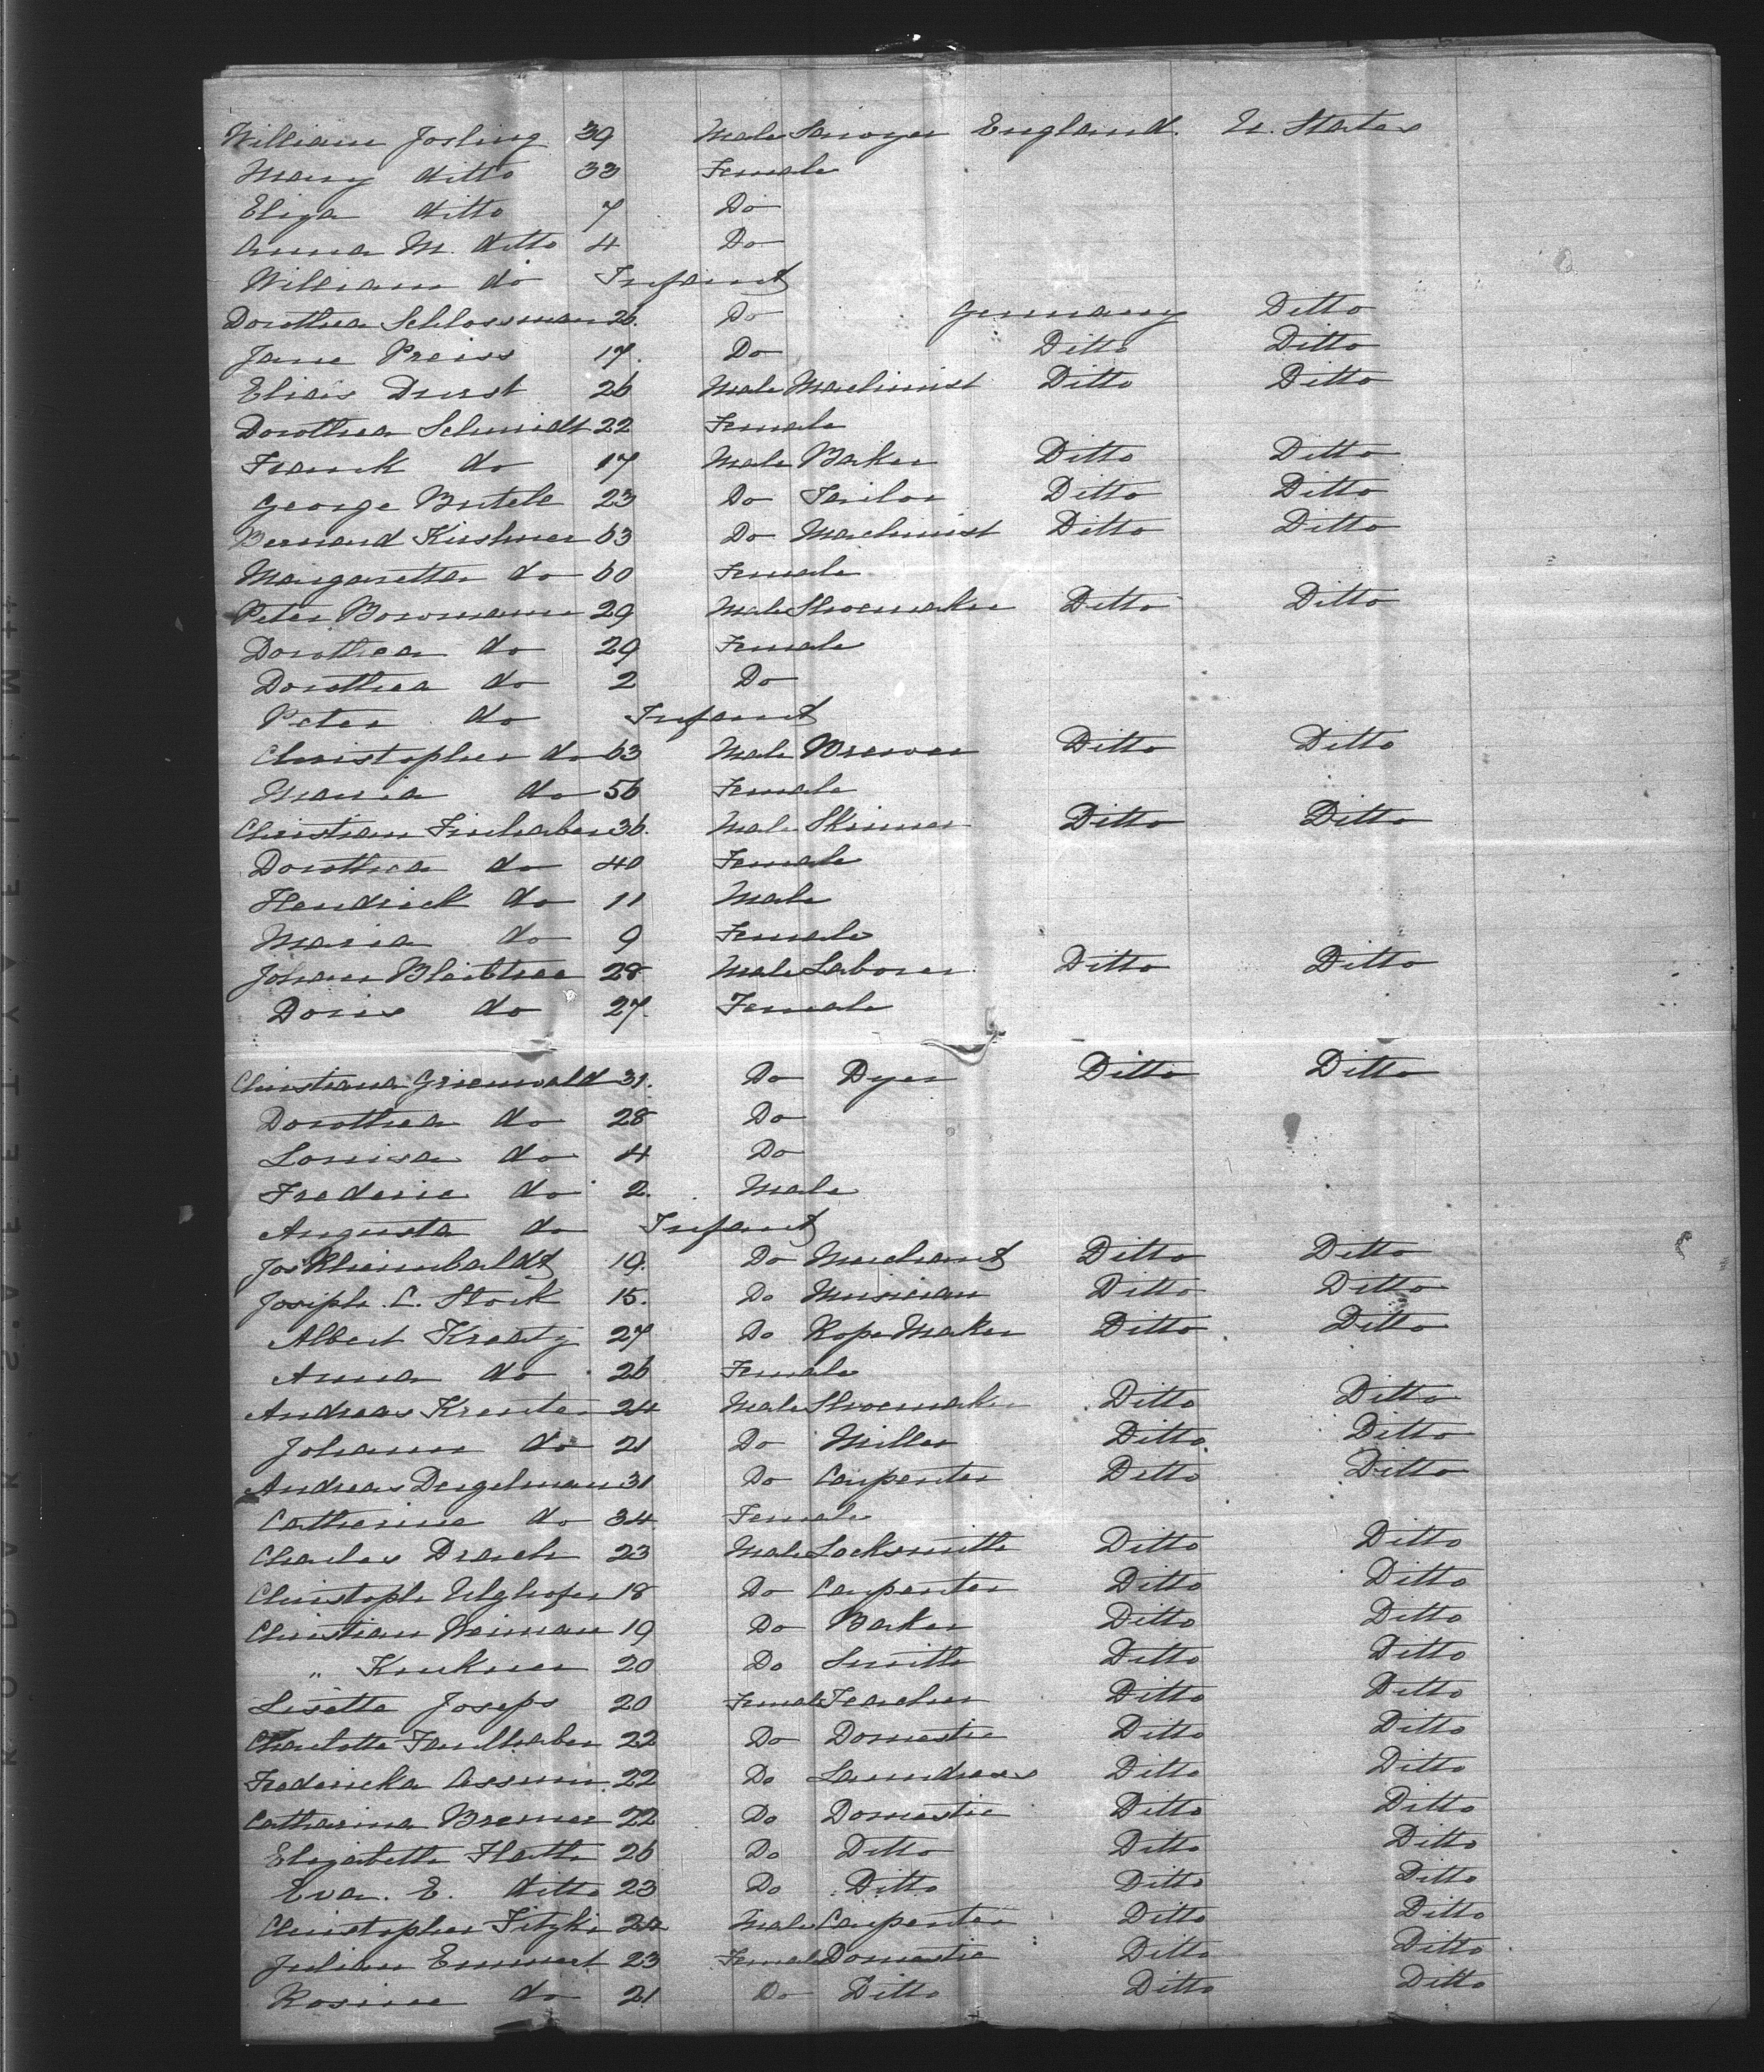 William Josling 39 Male Sawyer England. U. States
Mary ditto 33 Female
Eliza ditto 7 Do
Anna M. ditto 4 Do
William do Infant
Dorothea Schlossman 26. Do Germany Ditto
Jane Preiss 17. Do Ditto Ditto
Elias Durst 26 Male Machinist Ditto Ditto
Dorothea Schmidt 22 Female
Frank do 17 Male Baker Ditto Ditto
George 23 Do Tailor Ditto Ditto
Bernard Kirshner 63 Do Machinist Ditto Ditto
Margaretta do 60 Female
Peter Bowmann 29 Male Shoemaker Ditto Ditto
Dorothea do 29 Female
Dorothea do 2 Do
Peter do Infant
Christopher do 63 Male Brewer Ditto Ditto
Maria do 56 Female
Christian 36. Male Skinner Ditto Ditto
Dorothea do 40 Female
Hendrick do 11 Male
Maria do 9 Female
Johann 28 Male Laborer Ditto Ditto
Doris do 27. Female
Christiana Grienwald 31. Do Dyer Ditto Ditto
Dorothea do 28 Do
Louisa do 4 Do
Frederic do 2. Male
Augusta do Infant
Jos 19. Do Merchant Ditto Ditto
Joseph. C. Stock 15. Do Musician Ditto Ditto
Albert Kraatz 27 Do Rope Maker Ditto Ditto
Anna do 26 Female
Andreas Kreuter 24 Male Shoemaker Ditto Ditto
Johann do 21 Do Miller Ditto Ditto
Andreas Dengelman 31 Do Carpenter Ditto Ditto
Catherine do 34 Female
Charles Drach 23 Male Locksmith Ditto Ditto
Christoph 18 Do Carpenter Ditto Ditto
Christian Neiman 19 Do Baker Ditto Ditto
" 20 Do Smith Ditto Ditto
Lisette Joseps 20 Female Teacher Ditto Ditto
Charlotte Faulhaber 22 Do Domestic Ditto Ditto
Fredericka Assum. 22 Do Laundress Ditto Ditto
Catharina Bremer 22 Do Domestic Ditto Ditto
Elizabeth Hath 26 Do Ditto Ditto Ditto
Eva. E. ditto 23 Do Ditto Ditto Ditto
Christopher Fitzke 24 Male Carpenter Ditto Ditto
Julian Emmert 23 Female Domestic Ditto Ditto
Rosine do 21 Do Ditto Ditto Ditto